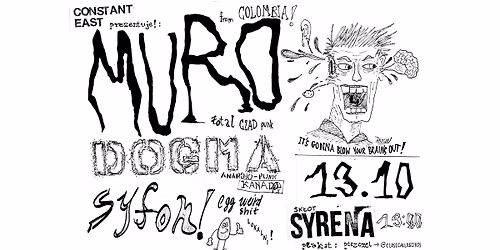 CONSTANT
EAST prezentuje!:
MURO
from COLOMBIA!
total CLAD punk
DOGMA
ANARCHO-PUNK
KANADA
Syfon!
egg word
shit
IT'S GONNA BLOW YOUR BRAINS OUT!
13.10
SKŁOT
SYRENA
plakat: